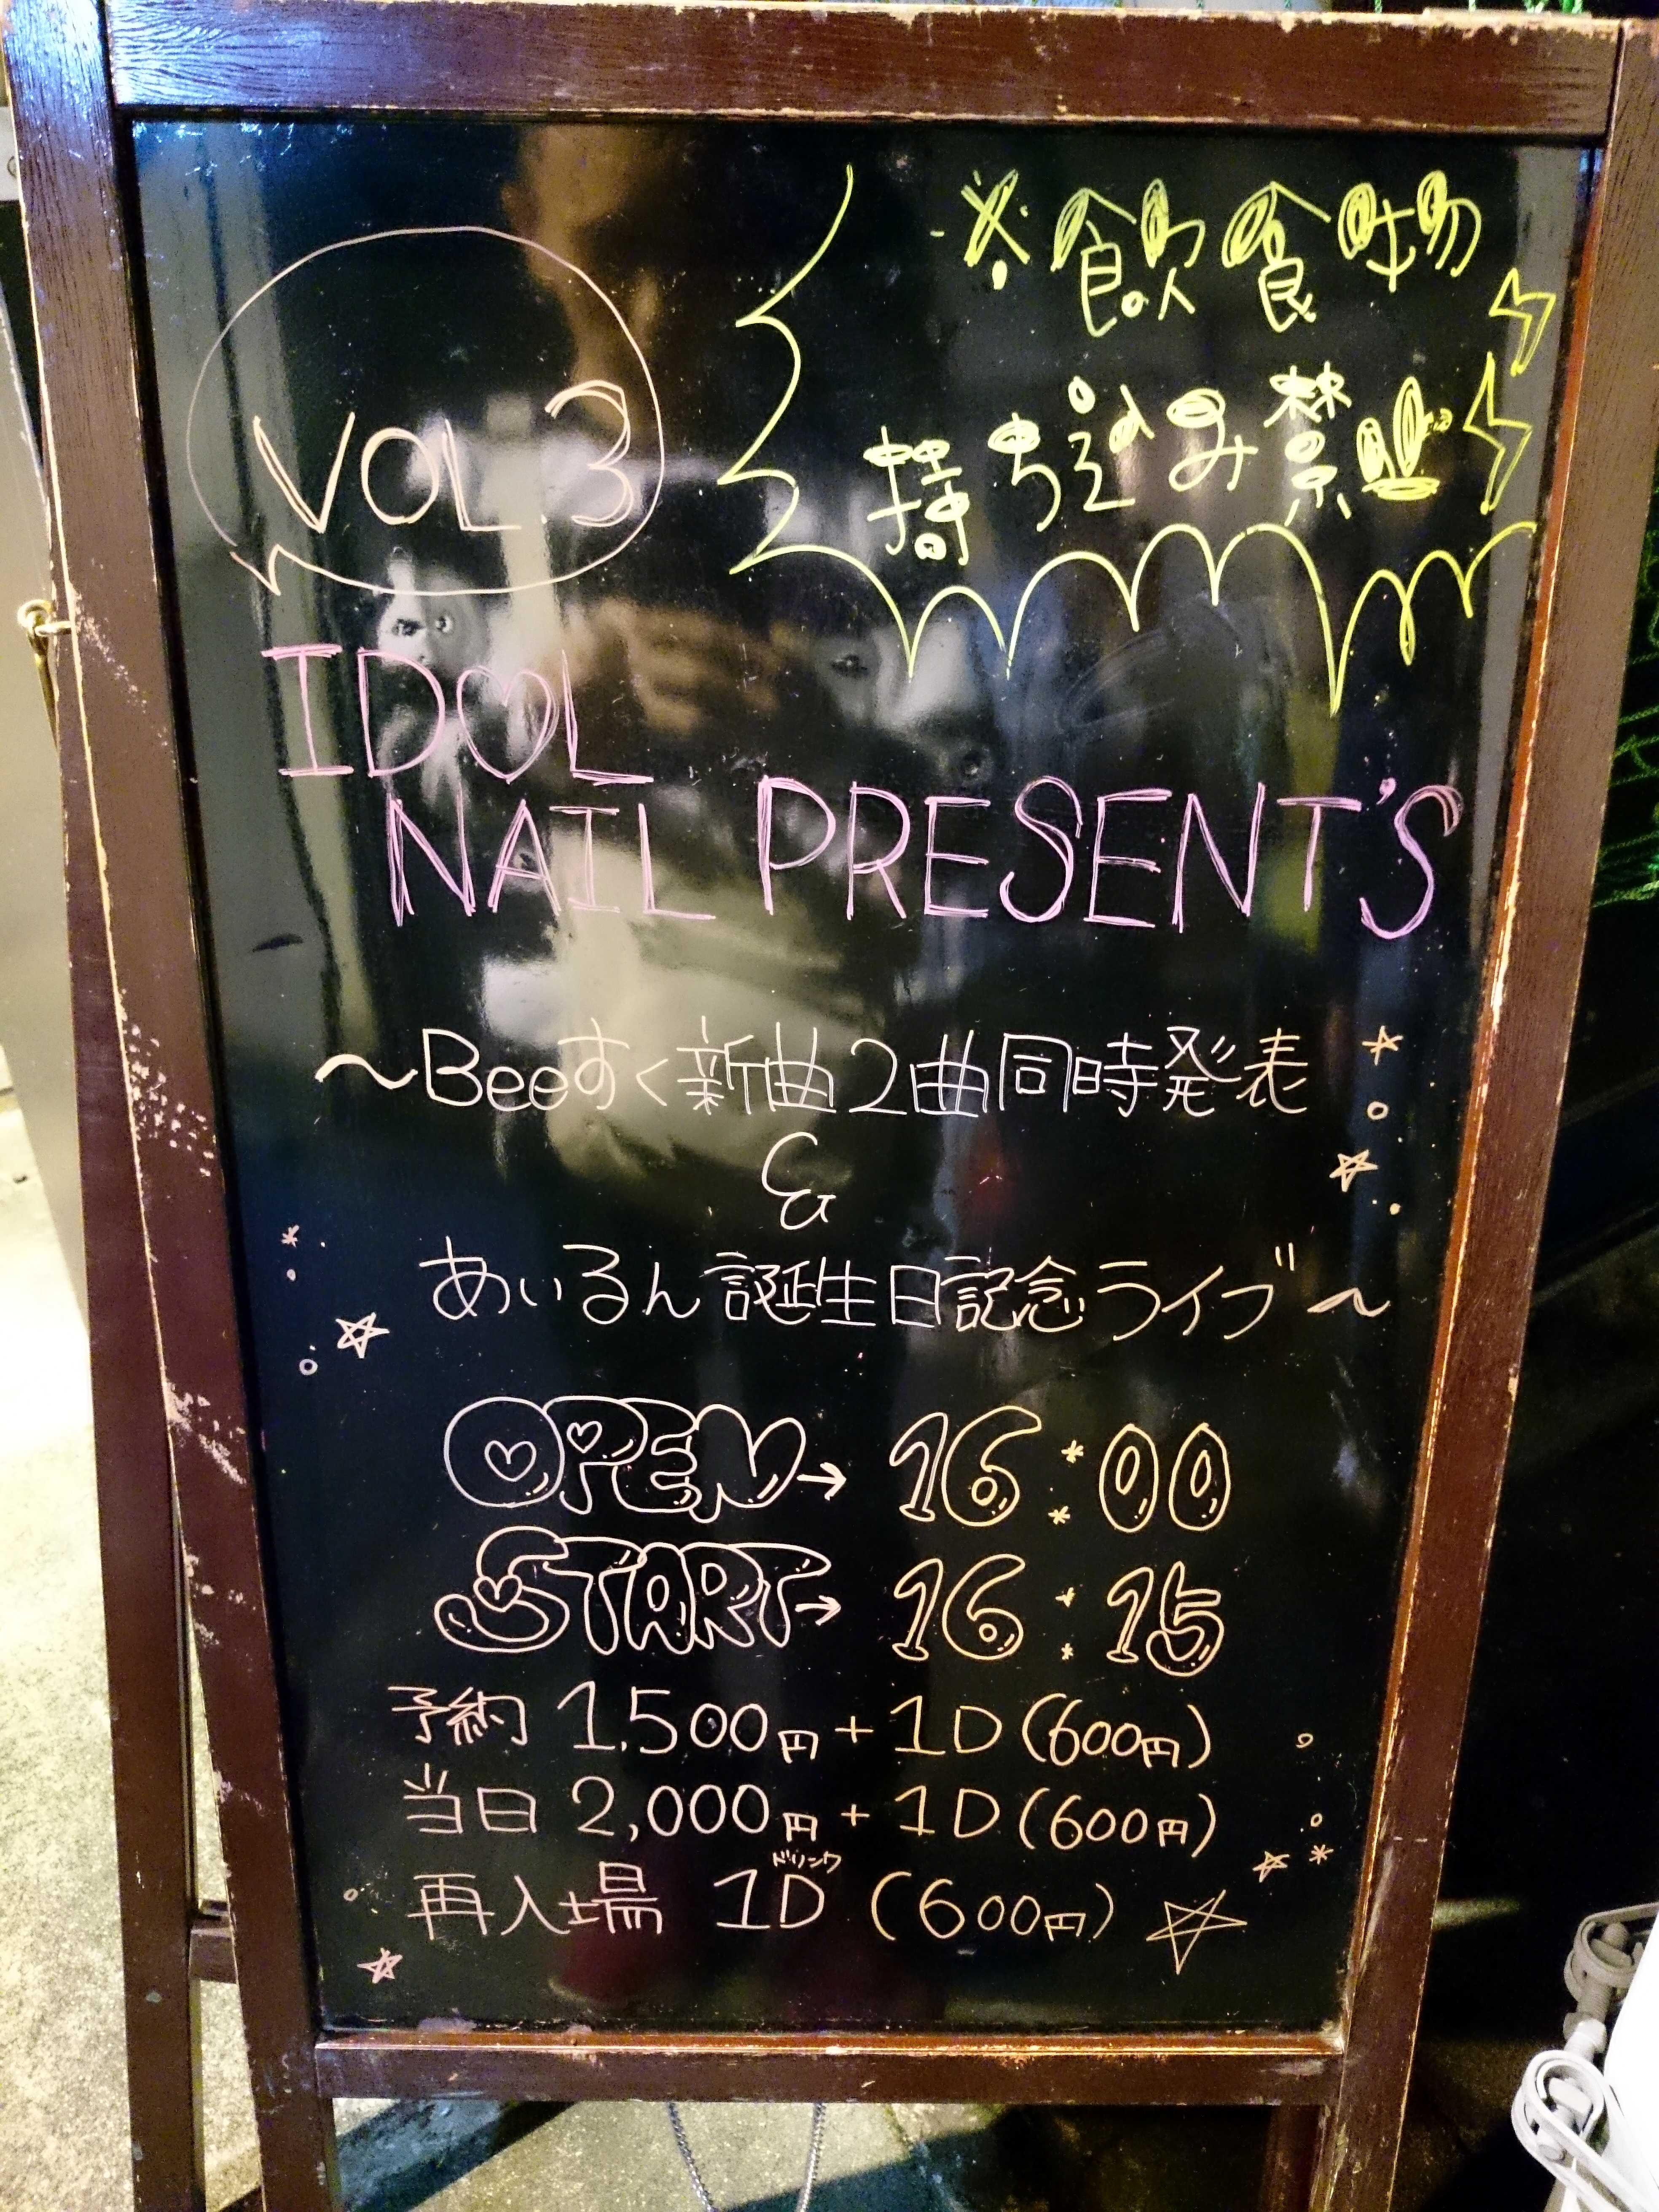 ※飲食物
持ち込み禁止
VOL 3
IDOL
NAIL PRESENT'S
～Beeすく新曲2曲同時発表
&
あいるん誕生日記念ライブ～
OPEN→ 16:00
START→ 16:15
予約 1,500円+1D(600円)
当日 2,000円+1D(600円)
ドリンク
再入場 1D (600円)